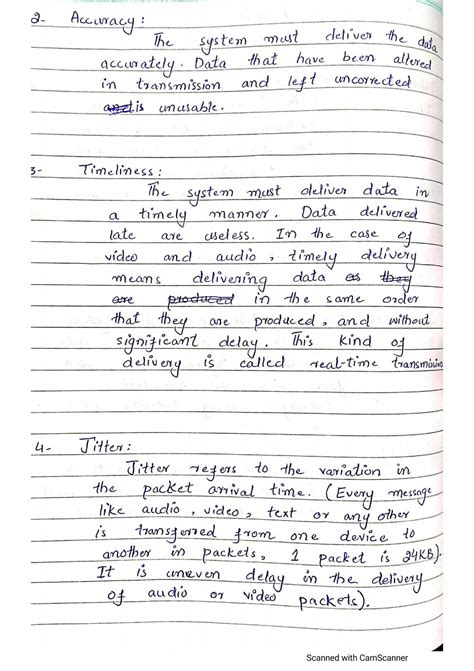 2- Accuracy :
The system must deliver the data
accurately. Data that have been altered
in transmission and left uncorrected
is unusable.
3- Timeliness :
The system must deliver data in
a timely manner. Data delivered
late are useless. In the case of
video and audio, timely delivery
means delivering data as they
are produced in the same order
that they are produced, and without
significant delay. This kind of
delivery is called real-time transmission
4- Jitter :
Jitter refers to the variation in
the packet arrival time. (Every message
like audio, video, text or any other
is transferred from one device to
another in packets, 1 packet is 24KB).
It is uneven delay in the delivery
of audio or video packets).
Scanned with CamScanner